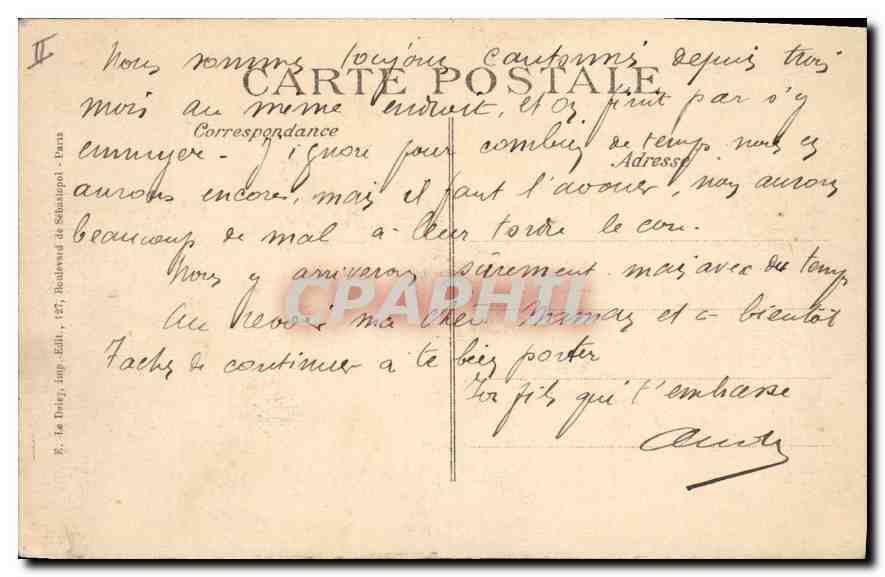 II
Nous sommes toujours cantonnés depuis trois
CARTE POSTALE
mois au même endroit, et on finit par s'y
Correspondance
ennuyer - J'ignore pour combien de temps nous en
Adresse
aurons encore, mais il faut l'avouer, nous aurons
beaucoup de mal à leur tordre le cou.
Nous y arriverons sûrement mais avec du temps
CPAPHIL
Au revoir ma chère Maman et à bientôt
Tache de continuer à te bien porter
Ton fils qui t'embrasse
André
E. Le Deley, imp.-Edit., 127, Boulevard de Sébastopol - Paris